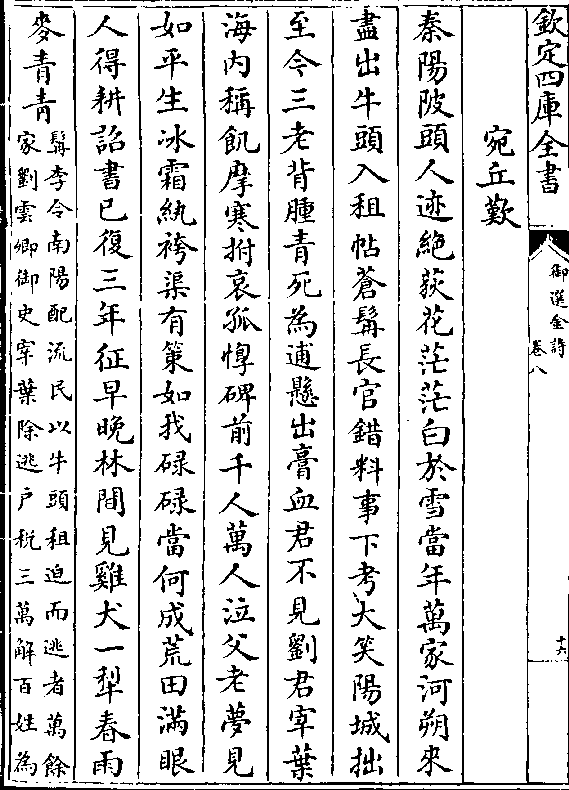 欽定四庫全書
御選金詩
卷八
十六
宛丘歎
秦陽陂頭人迹絶荻花茫茫白於雪當年萬家河朔來
盡出牛頭入租帖蒼髯長官錯料事下考大笑陽城拙
至今三老背腫青死為逋懸出膏血君不見劉君宰葉
海內稱飢摩寒拊哀孤惸碑前千人萬人泣父老夢見
如平生冰霜紈袴渠有策如我碌碌當何成荒田滿眼
人得耕詔書已復三年征早晚林間見雞犬一犁春雨
麥青青
髯李令南陽配流民以牛頭租迫而逃者萬餘
家劉雲卿御史宰葉除逃户税三萬解百姓為